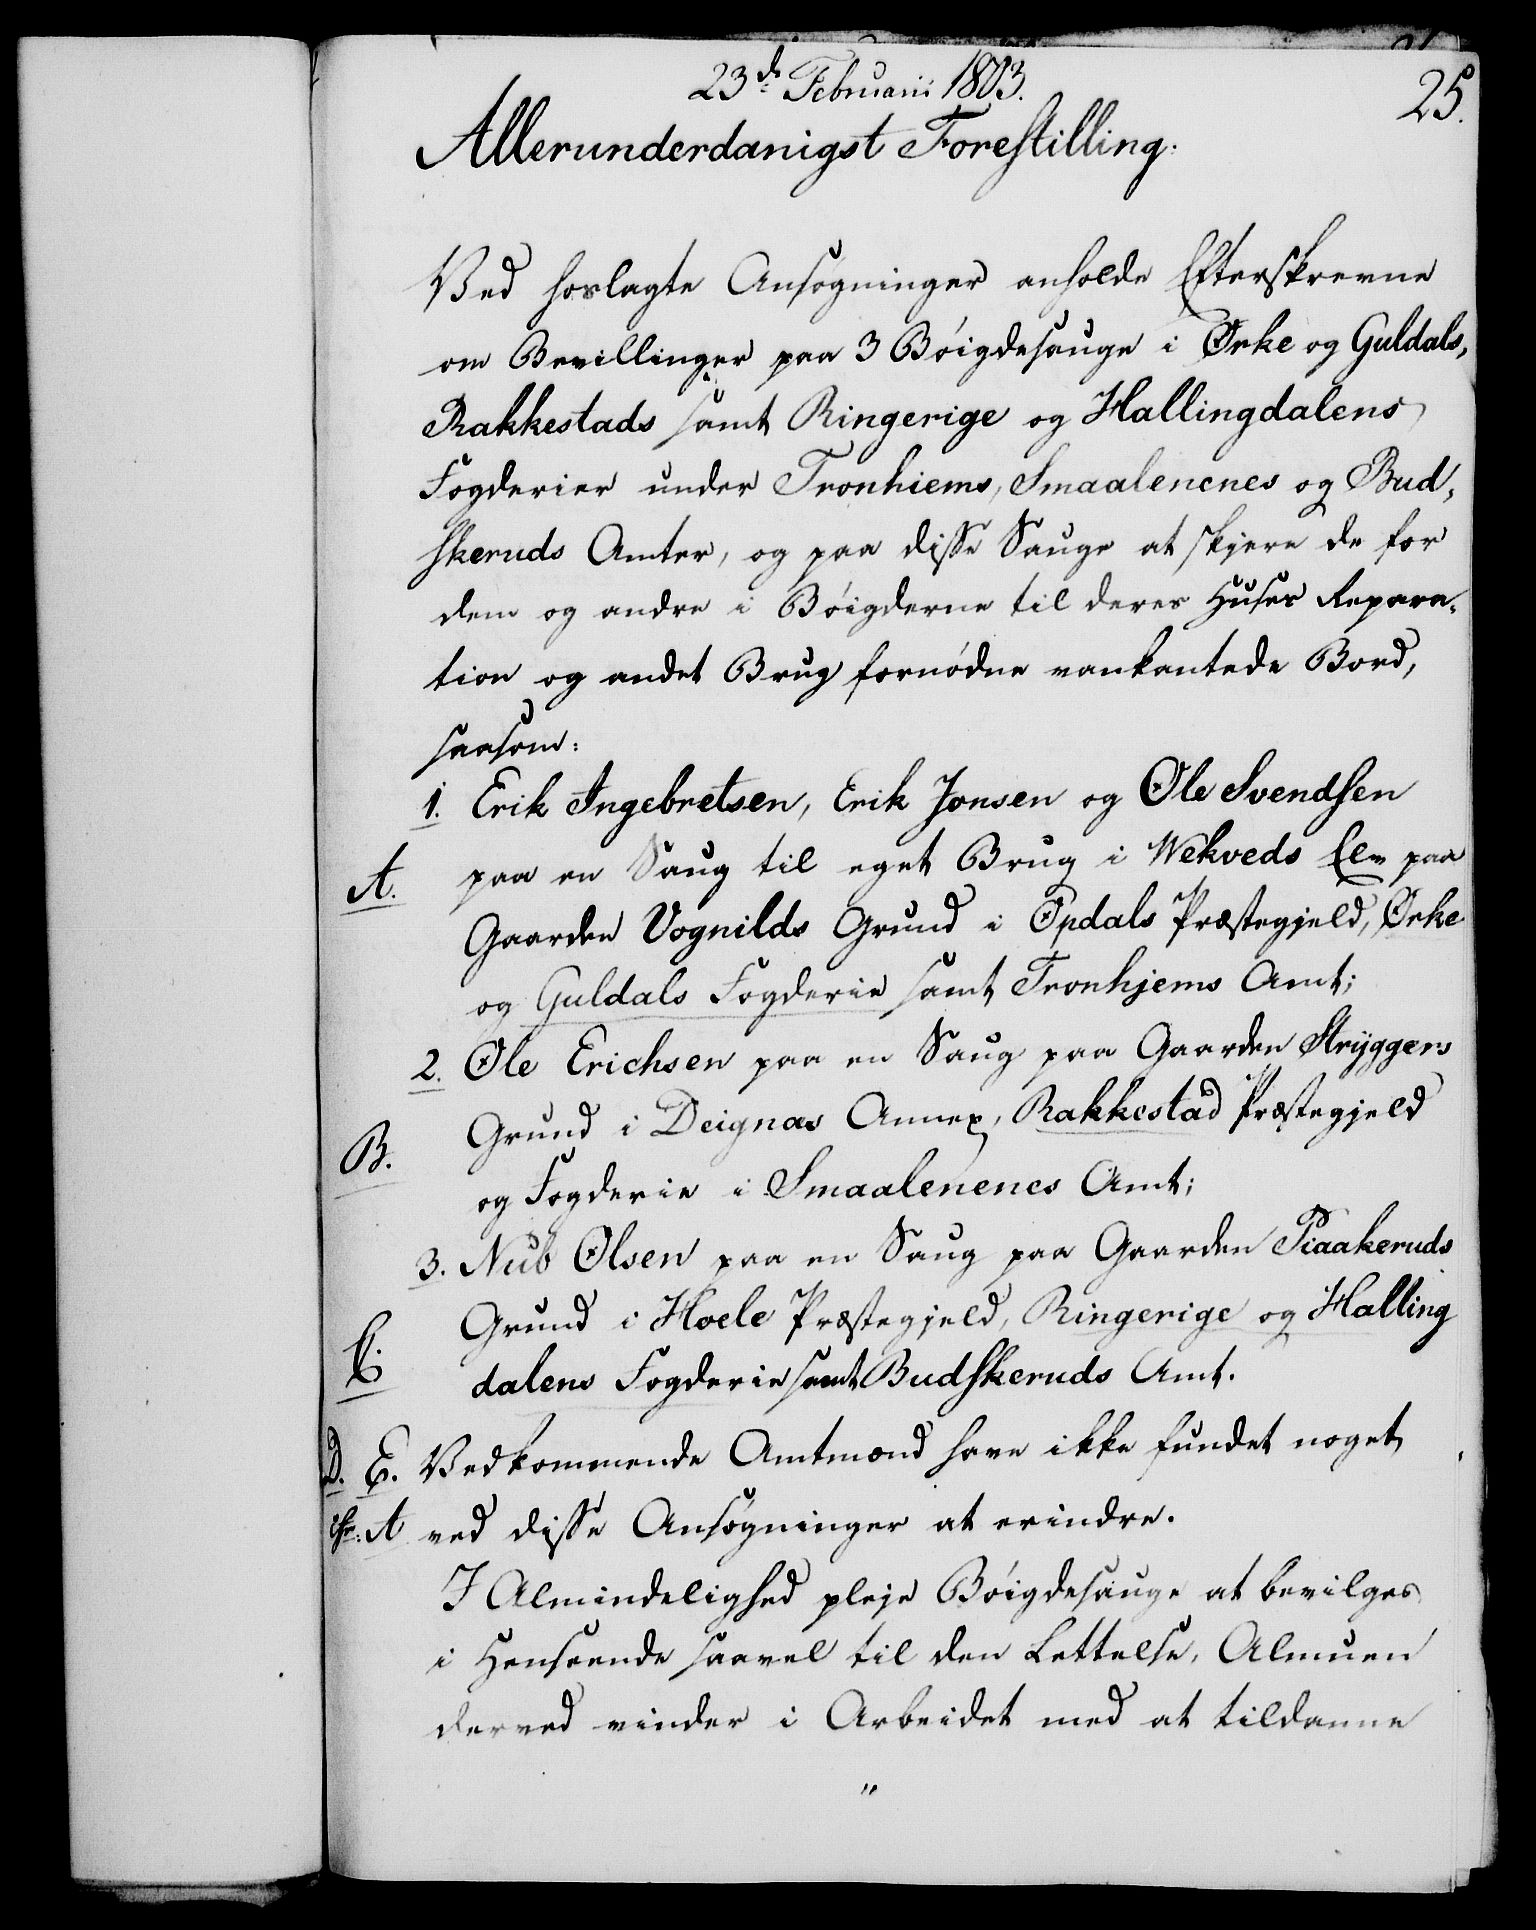 23d: Februarii 1803.
25.
Allerunderdanigst Forestilling.
Ved hoslagte Ansøgninger anholde Efterskrevne
om Bevillinger paa 3 Bøigdesauge i Ørke og Guldals,
Rakkestads samt Ringerige og Hallingdalens
Fogderier under Tronhiems, Smaalenenes og Bud-
skeruds Amter, og paa disse Sauge at skjere de for
dem og andre i Bøigderne til deres Huses Repara-
tion og andet Brug fornødne vankantede Bord,
saasom:
1. Erik Ingebretsen, Erik Jonsen og Ole Svendsen
A. paa en Saug til eget Brug i Wekveds Elv paa
Gaarden Vognilds Grund i Opdals Præstegjeld, Ørke
og Guldals Fogderie samt Tronhjems Amt;
2. Ole Erichsen paa en Saug paa Gaarden Stryggers
B. Grund i Deignæs Annex, Rakkestad Præstegjeld
og Fogderie i Smaalenenes Amt;
3. Nub Olsen paa en Saug paa Gaarden Piaakeruds
Grund i Hoele Præstegjeld, Ringerige og Halling
C. dalens Fogderie samt Budskeruds Amt.
D. E. Vedkommende Amtmænd have ikke fundet noget
cfr: A ved disse Ansøgninger at erindre.
I Almindelighed pleje Bøigdesauge at bevilges
i Henseende saavel til den Lettelse, Almuen
derved vinder i Arbeidet med at tildanne
"